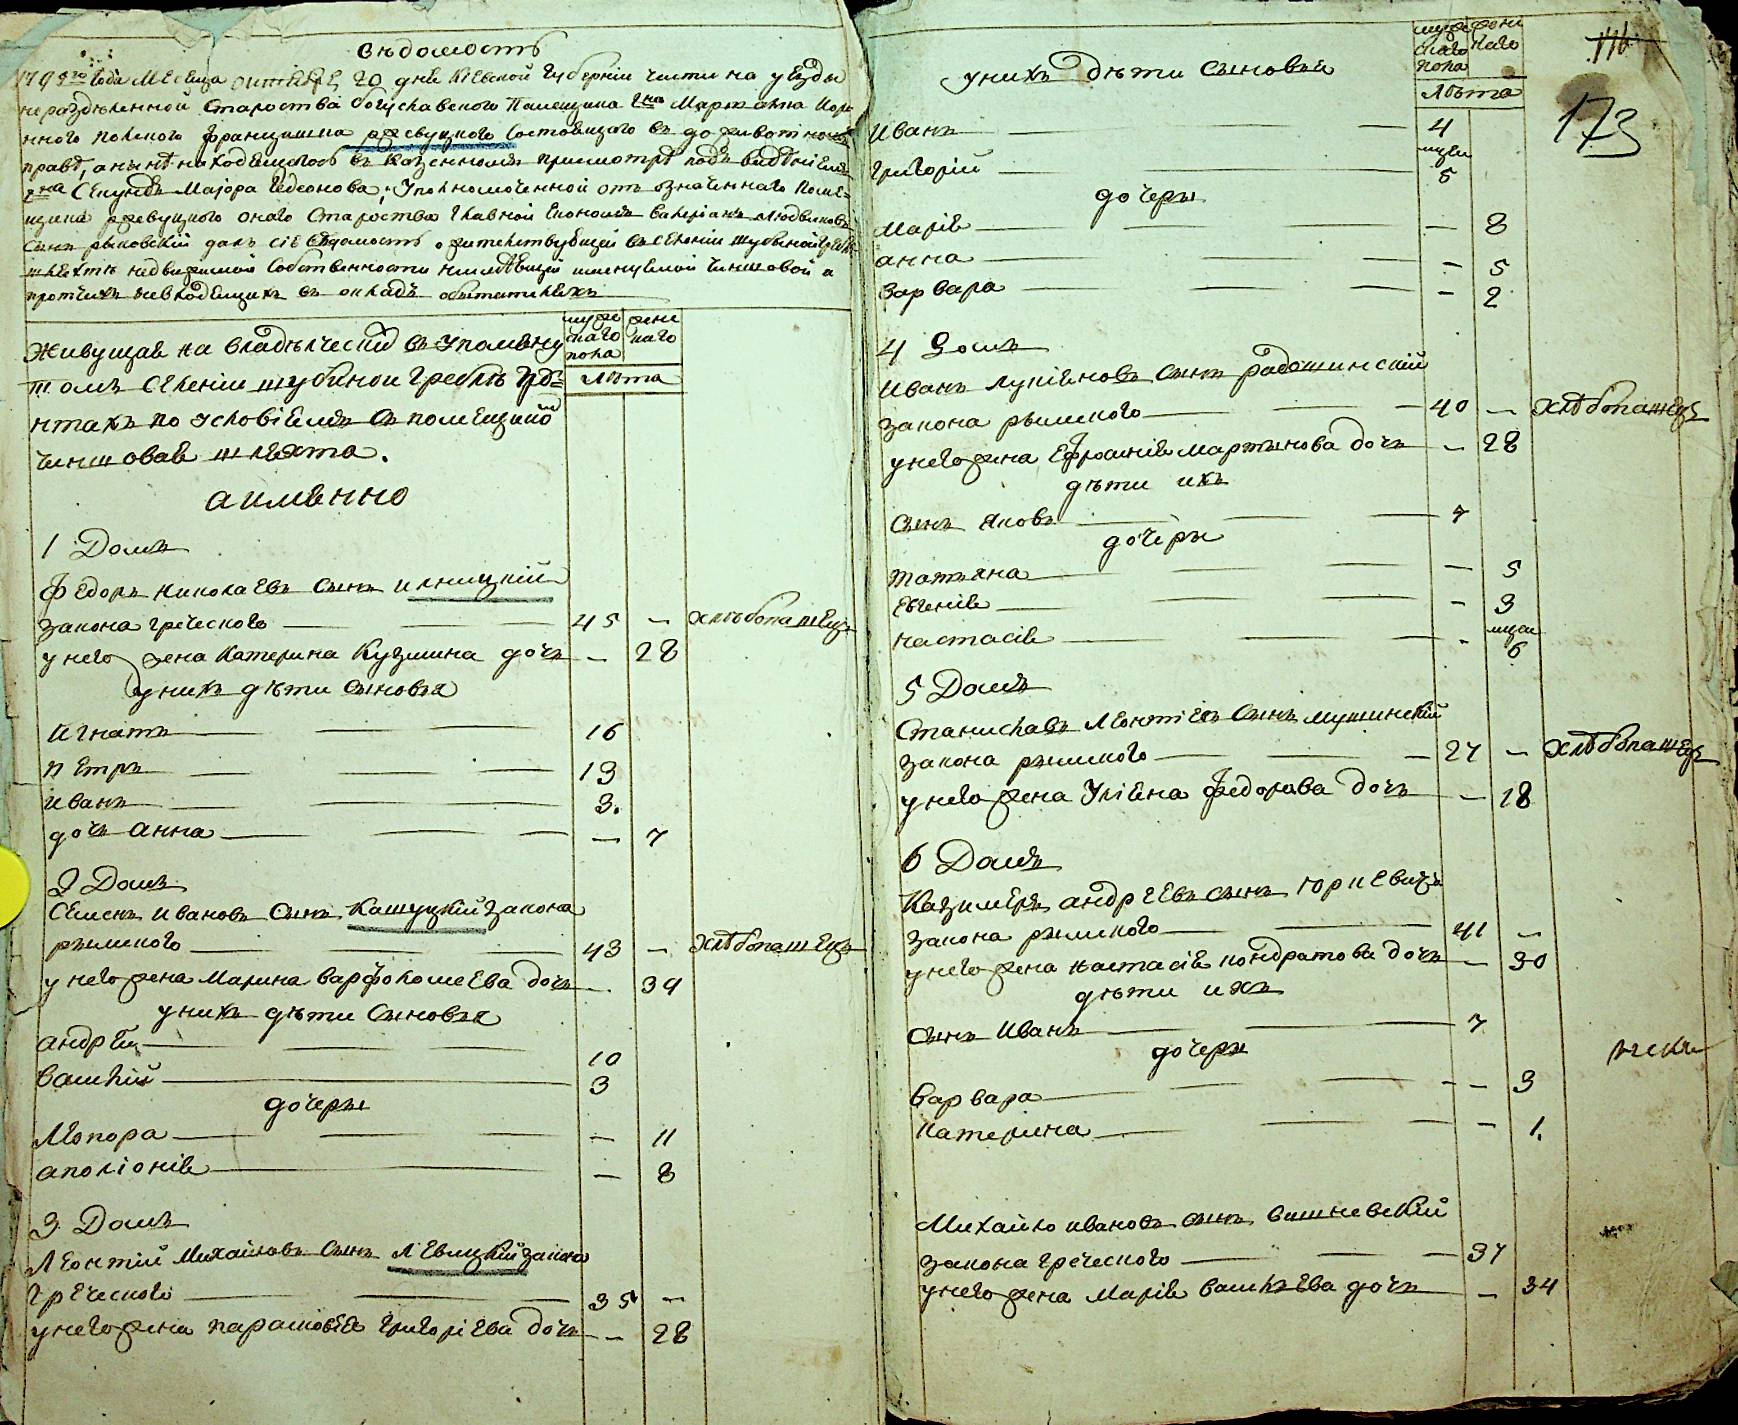 Вѣдомость
1795го Года Месеца октября 20 дня Киевской Губернїи части на уезды
не раздѣленной Староства богуславского Помещика Гна Маршалка Кор
нного полского францишка ржевуцкого Состоящого въ доживотномъ
правѣ, а нынѣ находящогось въ казенномъ присмотрѣ подъ видѣнїемъ
Гна Секундъ Маїора Гедеонова, Уполномоченной отъ означенного поме-
щика ржевуцкого оного Староства Главной Економъ валерїанъ людвиковъ
сынъ рыковский далъ сїе Вѣдомость о жителствующей въ селенїи шубиной гребли
шляхтѣ недвижимой Собственности неимѣющей именуемой чиншовой и
протчихъ невходящихъ въ окладъ обытателяхъ
Живущая на владѣлческий въ упомяну
томъ Селенїи шубиной Греблѣ Кгрꙋ-
нтахъ по Условїемъ съ помещикомъ
Чиншовая шляхта.
муже
скаго
пола
жене
каго
лѣта
а имѣнно
1 Домъ
Федоръ николаевъ сынъ илницкїй
закона греческого 45 — хлѣбопашецъ
у него жена Катерина Кузмина дочь — 28
у нихъ дѣти сыновья
Игнатъ 16
Петръ 13
иванъ 3.
дочь анна — 7
2 Домъ
Семенъ ивановъ сынъ Кашуцкїй закона
рымского 43 — хлѣбопашецъ
у него жена Марина варфоломеева дочь — 34
у нихъ дѣти Сыновья
андрей 10
василїй 3
дочеры
Модора — 11
аполїонїя — 8
3 Домъ
Леонтїй Михайловъ сынъ Левицкїй закона
Греческого 35 —
у него жена параковїя григорїева дочь — 28
116
173
у нихъ дѣти Сыновья
муже
скаго
пола
жени
каго
лѣта
Иванъ 4
григорїй мцей 5
дочеры
Марїя — 8
анна — 5
варвара — 2
4 Домъ
Иванъ лукїяновъ сынъ радошинскїй
закона рымского 40 — хлѣбопашецъ
у него жена Ефросинїя мартынова дочь — 28
дѣти ихъ
сынъ яковъ 7
дочеры
татьяна — 5
евгенїя — 3
настасїя — мцей 6
5 Домъ
Станиславъ Леонтїевъ сынъ мушинскїй
закона рымского 27 — хлѣбопашецъ
у него жена Улїяна федорова дочь — 18
6 Домъ
Казимеръ андреевъ сынъ юркевичъ
закона рымского 41 —
у него жена настасїя кондратова дочь — 30
дѣти ихъ
сынъ Иванъ 7
дочеры
варвара — 3
катерина — 1.
Михайло ивановъ сынъ вишневскїй
закона греческого 37
у него жена Марїя василева дочь — 34